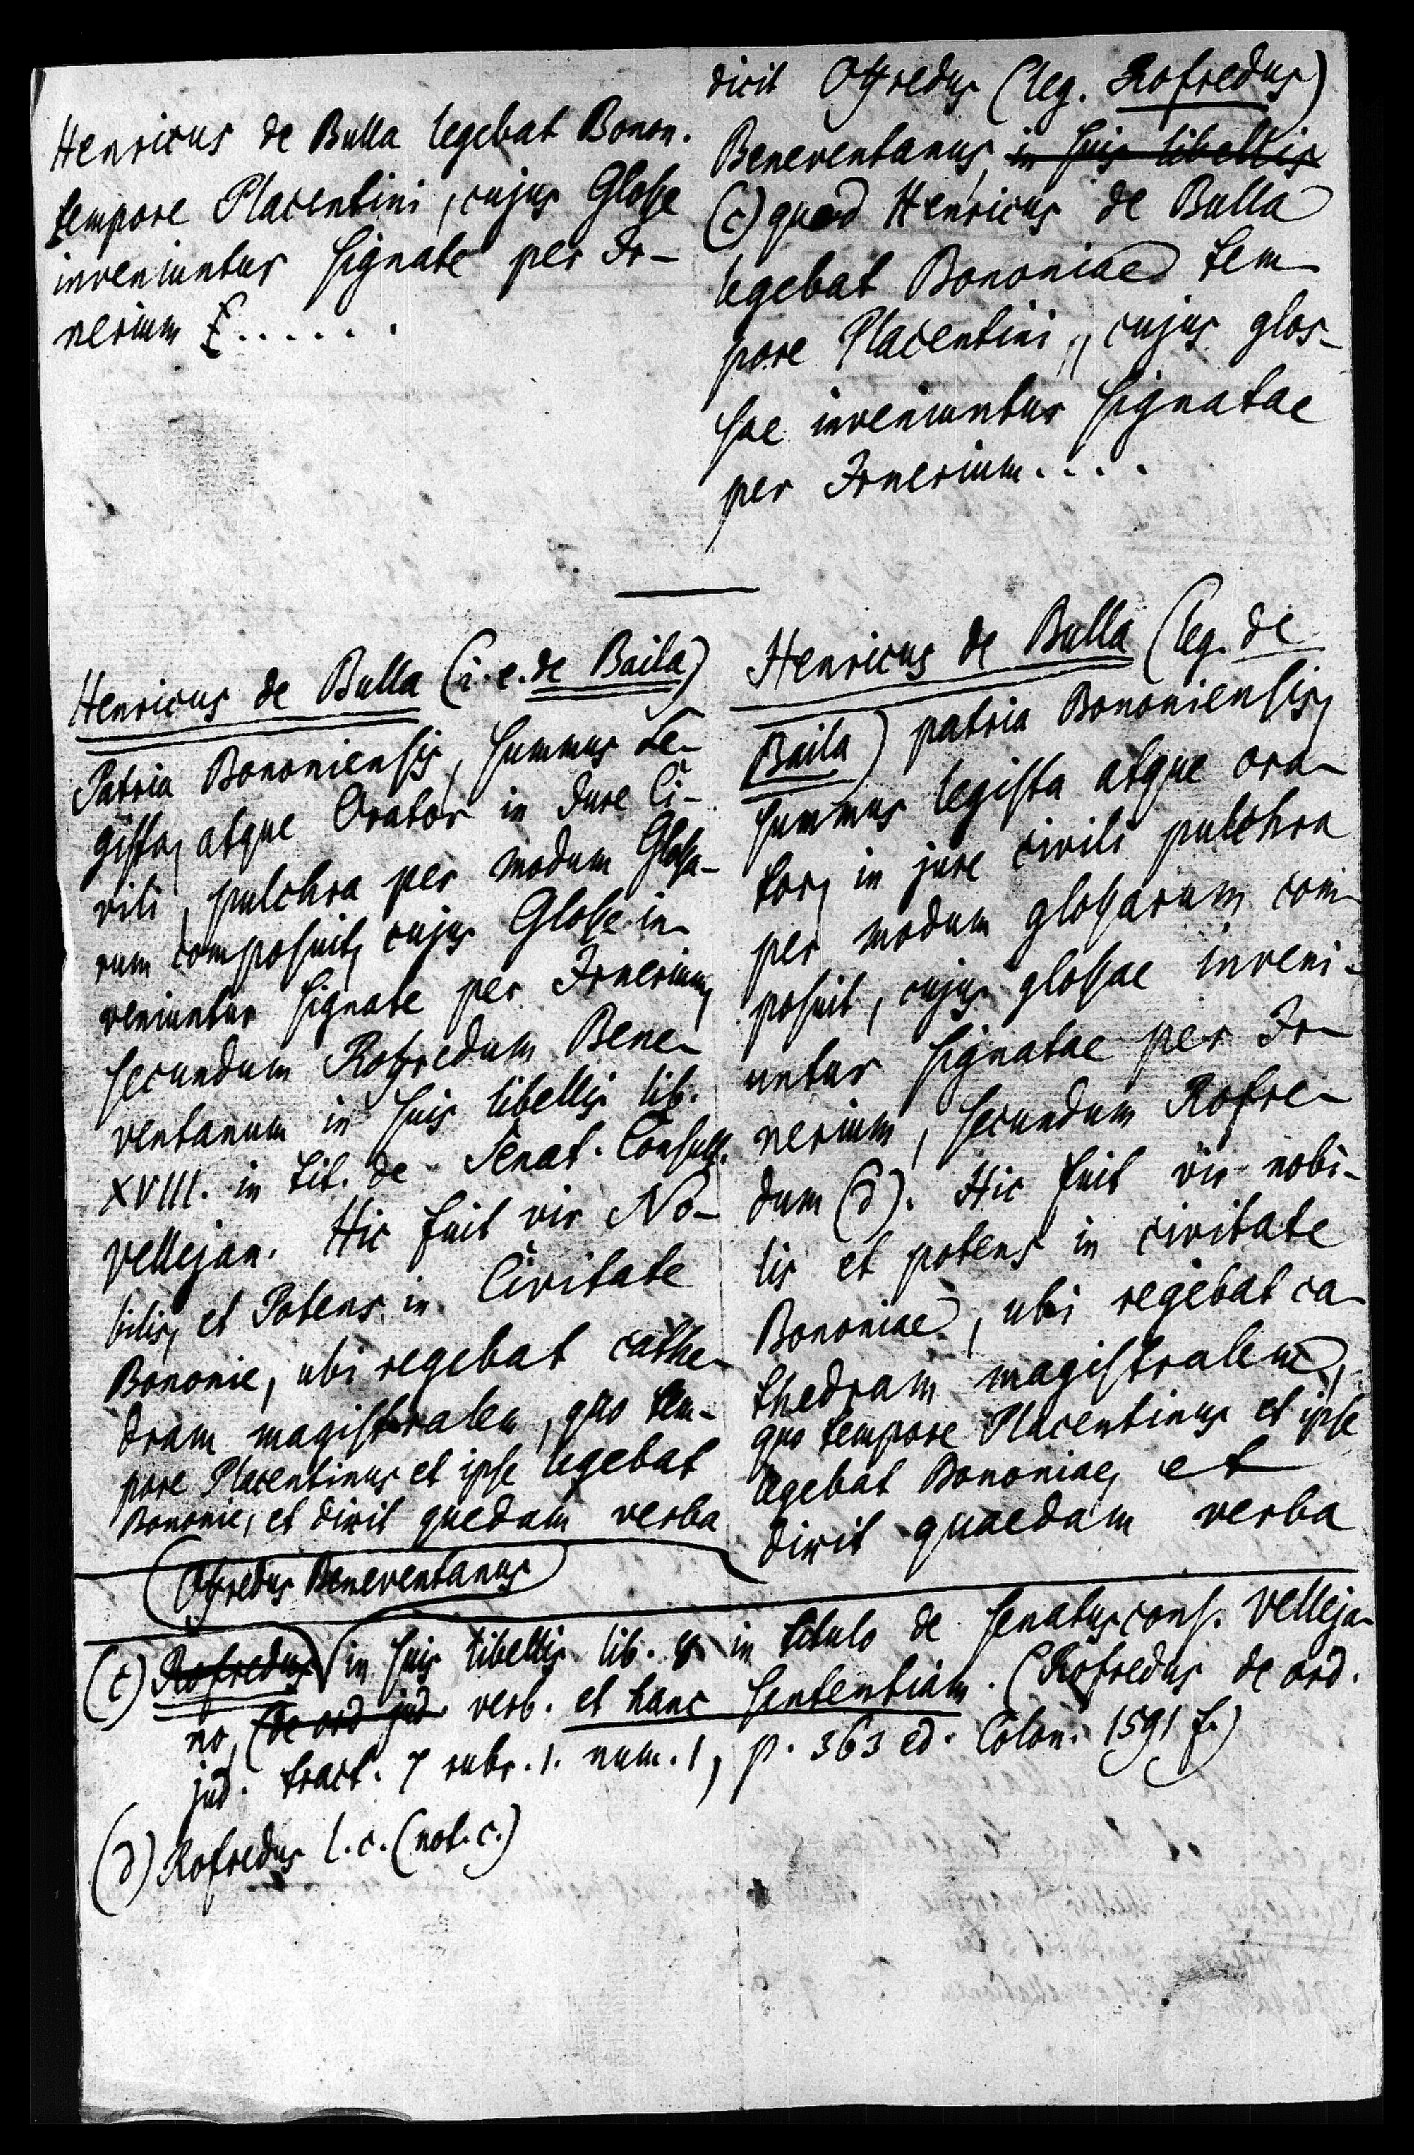 Henricus de Bulla legebat Bonon.
tempore Placentini, cujus Glosse
inveniuntur signate per Ir-
nerium
dicit Offredus (leg. Rofredus)
Beneventanus, in suis libellis
(c) quod Henricus de Bulla
legebat Bononiae tem-
pore Placentini, cujus glos-
sae inveniuntur signatae
per Irnerium....
Henricus de Bulla (i. e. de Baila)
Patria Bononiensis, summus Le-
gista, atque Orator in Jure Ci-
vili, pulchra per modum Glossa-
rum composuit, cujus Glosse in-
veniuntur signate per Irnerium,
secundum Roffredum Bene-
ventanum in suis libellis lib.
XVIII. in tit. de Senat. Consult.
Vellejan. Hic fuit vir No-
bilis, et Potens in Civitate
Bononie, ubi regebat cathe-
dram magistralem, quo tem-
pore Placentinus et ipse legebat
Bononie, et dicit quedam verba
Offredus Beneventanus
Henricus de Bulla (leg. de
Baila) patria Bononiensis,
summus legista atque ora-
tor, in jure civili pulchra
per modum glossarum com-
posuit, cujus glossae inveni-
untur signatae per Ir-
nerium, secundum Rofre-
dum (d). Hic fuit vir nobi-
lis et potens in civitate
Bononiae, ubi regebat ca-
thedram magistralem,
quo tempore Placentinus et ipse
legebat Bononiae, et
dicit quaedam verba
(c) Rofredus in suis libellis lib. in titulo de senatuscons. Velleja-
no, (de ord jud. verb. et hanc sententiam. (Rofredus de ord.
jud. tract. 7 rubr. 1. num. 1, p. 363 ed. Colon. 1591 f.)
(d) Rofredus l. c. (not. c.)